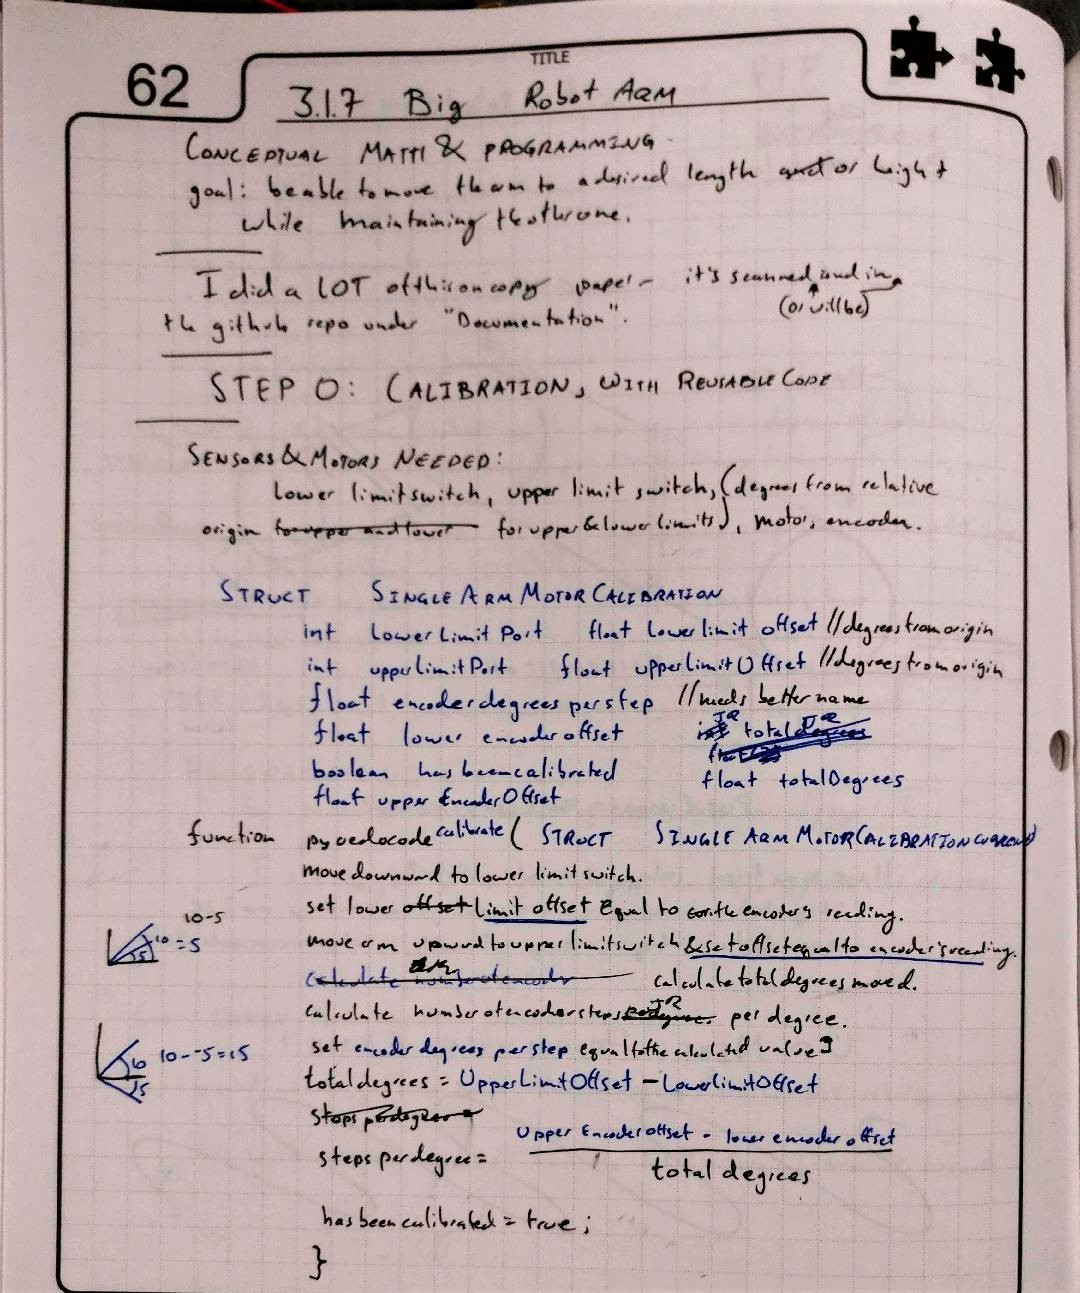 TITLE
62
3.1.7 Big Robot Arm
CONCEPTUAL MATH & PROGRAMMING
goal: be able to move the arm to a desired length or height
while maintaining the other one.
I did a LOT of this on copy paper - it's scanned and in
(or will be)
the github repo under "Documentation".
STEP 0: CALIBRATION, WITH REUSABLE CODE
SENSORS & MOTORS NEEDED:
Lower limit switch, upper limit switch, (degrees from relative
origin for upper and lower for upper & lower limits), motor, encoder.
STRUCT SINGLE ARM MOTOR CALIBRATION
int Lower Limit Port float Lower limit offset //degrees from origin
int upper Limit Port float upper Limit Offset //degrees from origin
float encoder degrees per step //needs better name
float lower encoder offset int total degrees JR
boolean has been calibrated float totalDegrees
float upper Encoder Offset
function psuedocode calibrate ( STRUCT SINGLE ARM MOTOR CALIBRATION current)
move downward to lower limit switch.
10-5
set lower offset limit offset Equal to the encoder's reading.
10 =5
5
move arm upward to upper limit switch & set offset equal to encoder's reading.
calculate total degrees moved.
calculate number of encoder steps JR per degree.
10 10--5=15
5
set encoder degrees per step equal to the calculated value
total degrees = Upper Limit Offset - Lower Limit Offset
steps per degree =
steps per degree = upper Encoder offset - lower encoder offset
total degrees
has been calibrated = true;
}